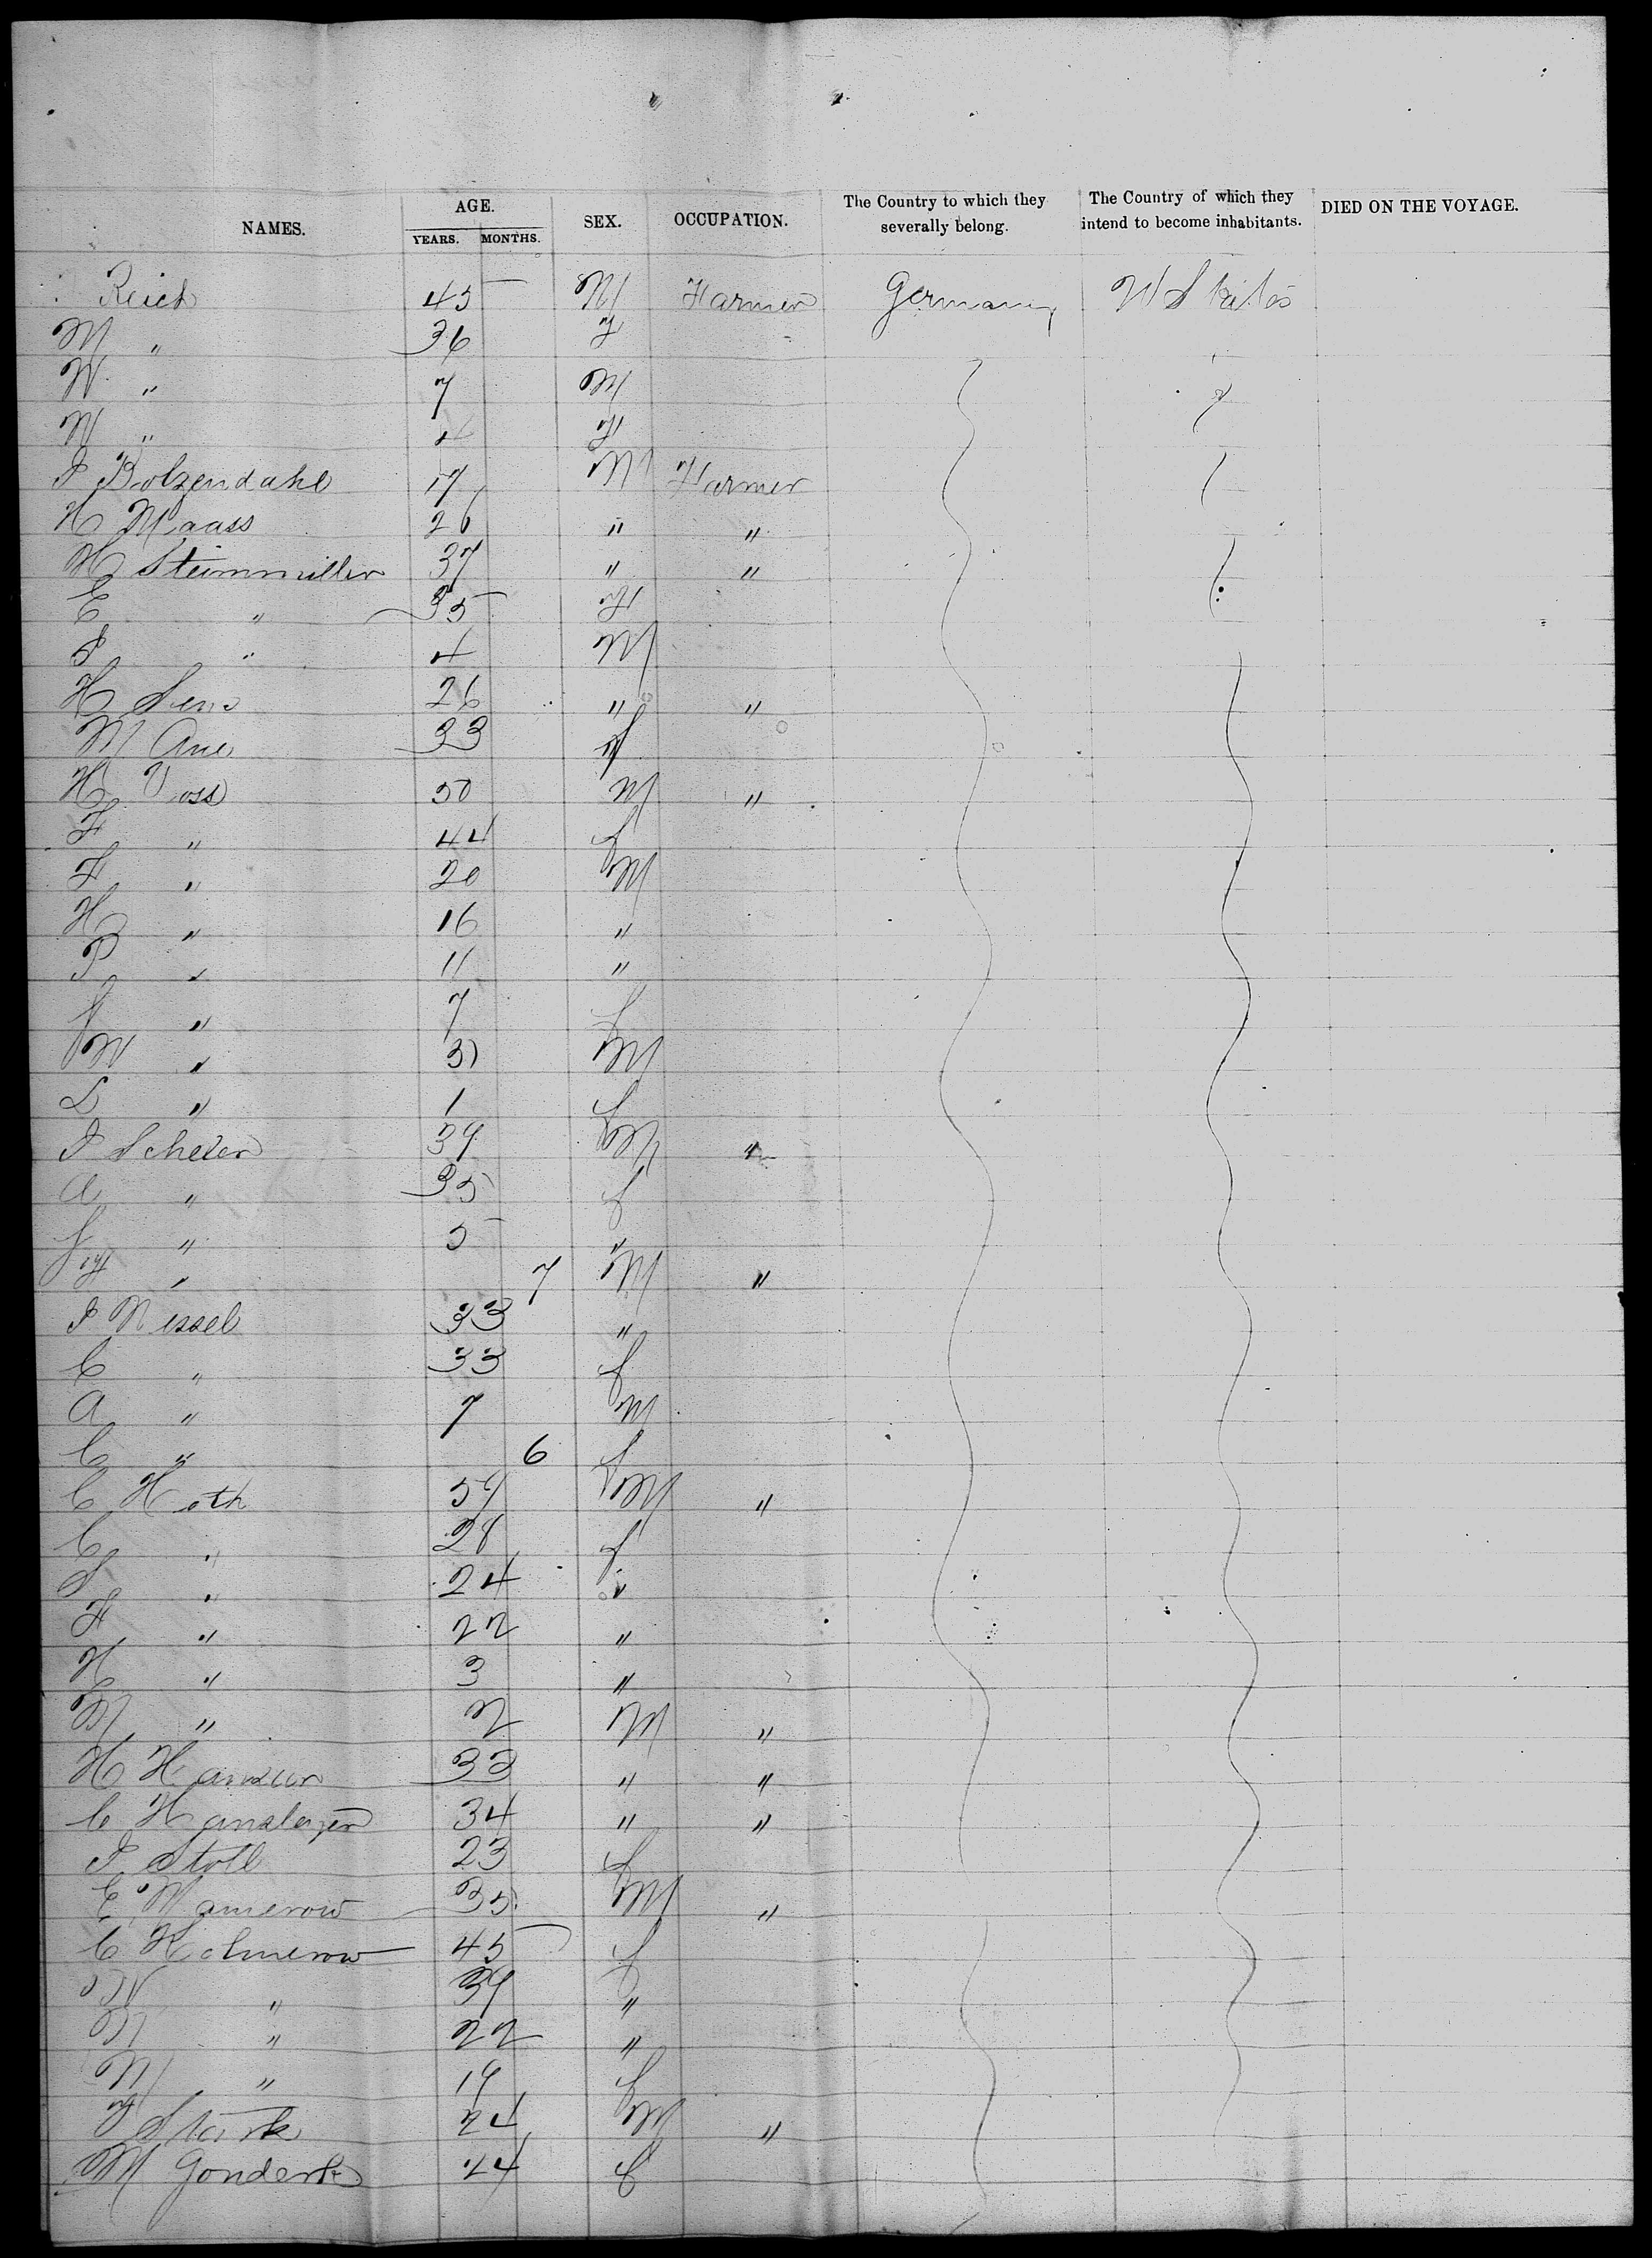 NAMES. AGE. YEARS. MONTHS. SEX. OCCUPATION. The Country to which they severally belong. The Country of which they intend to become inhabitants. DIED ON THE VOYAGE.
Reich 45 M Farmer Germany U States
M " 36 F
W. " 7 M
M " 4 F
J Bolzendahl 17 M Farmer
H Maass 26 " "
H Steinmiller 37 " "
E " 35 F
J " 4 M
H Sens 26 " "
M Aue 33 f
H Voss 50 M "
F " 44 f
F " 20 M
H " 16 "
P " 11 "
J " 7 f
W " 3 M
L " 1 f
J Scheler 39 M "
A " 35 f
J " 5 "
H " 7 M "
J Nessel 33 "
C " 33 f
A " 7 M
C " 6 f
C Hoth 59 M "
C " 28 f
S " 24 "
F " 22 "
H " 3 "
M " 2 M "
H 33 " "
C 34 " "
J Stoll 23 f
E Mamerow 35 M "
C 45 f
W " 39 "
M " 22 "
M " 19 f
F Stark 24 M "
M 24 f